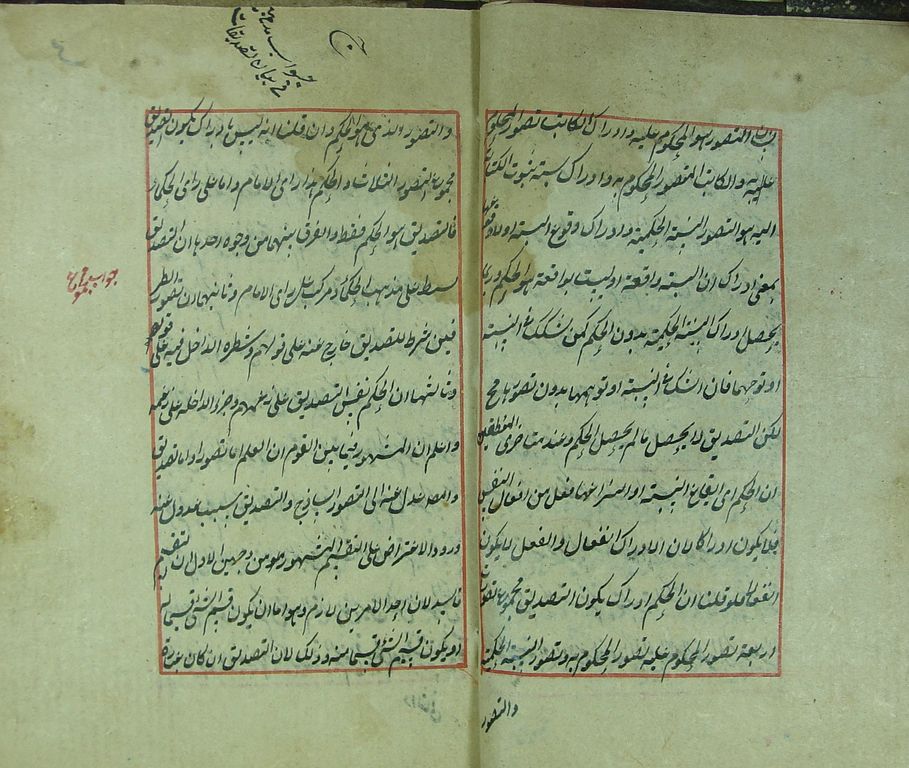 التصور هو المحكوم عليه وادراك الكاتب تصور المحكوم
عليه والكاتب المتصور المحكوم به وادراك نسبة ثبوت الكتابة
اليه هو التصور النسبة الحكمية وادراك وقوع النسبة او لا وقوعها
بمعنى ادراك ان النسبة واقعة او ليست بواقعة هو الحكم وربما
يحصل ادراك النسبة الحكمية بدون الحكم كمن تشكك فى النسبة
او توهمها فان الشك فى النسبة او توهمها بدون تصورها مح
لكن التصديق لا يحصل ما لم يحصل الحكم وعند متاخرى المنطقين
ان الحكم اى ايقاع النسبة او انتزاعها فعل من افعال النفس
فلا يكون ادراكا لان الادراك انفعال والفعل لا يكون
انفعالا فلو قلنا ان الحكم ادراك يكون التصديق مجموع تصورات
اربعة تصور المحكوم عليه تصور المحكوم به وتصور النسبة الحكمية
والتصور
جواب
فى بيان تصديقات
والتصور والذى هو الحكم وان قلنا انه ليس بادراك يكون التصديق
مجموع التصور الثلاث والحكم هذا راى الامام واما على راى الحكماء
فالتصديق هو الحكم فقط والفرق بينهما من وجوه احدها ان التصديق
بسيط على مذهب الحكماء ومركب على راى الامام وثانيهما ان تصور الطر
فين شرط للتصديق خارج عنه على قولهم وشطره الداخل فيه على قوله
وثالثها ان الحكم نفس التصديق على زعمهم وجزء الداخله على زعمه
واعلم ان المشهور فيما بين القوم ان العلم اما تصور او اما تصديق
والمصه عدل عنه الى التصور الساذج والتصديق بسبب عدول عنه
ورود الاعتراض على التقسيم المشهور وهو من وجهين الاول ان التقسيم
فاسد لان احد الامرين لازم وهو اما ان يكون قسم الشئ قسيما له
او يكون قسيم الشئ قسما منه وذلك لان التصديق ان كان عبارة